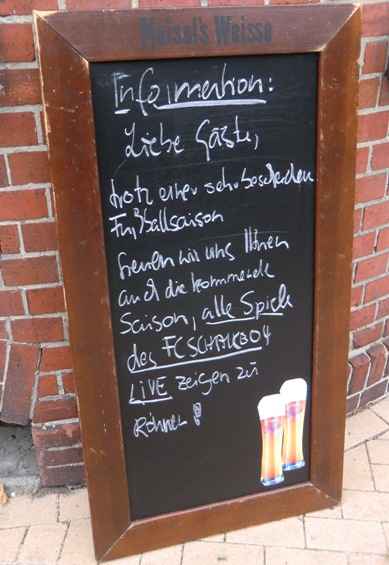 Maisel's Weisse
Information:
Liebe Gäste,
trotz einer sehr bescheidenen
Fußballsaison
freuen wir uns Ihnen
auch die kommende
Saison, alle Spiele
des FC SCHALKE 04
LIVE zeigen zu
können!